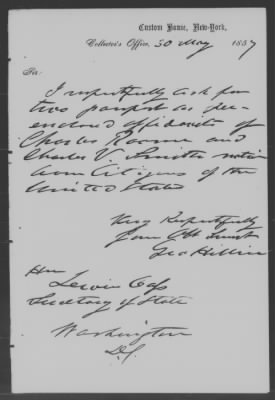 Custom House, New-York,
Collector's Office, 30 May 1857
Sir:
I respectfully ask for
two passport as per
enclosed affidavits of
Charles and
Charles V. native
Citizens of the
United States
Very Respectfully
Your Obt Servt
Geo
Hon
Lewis Cass
Secretary of State
Washington
D.C.